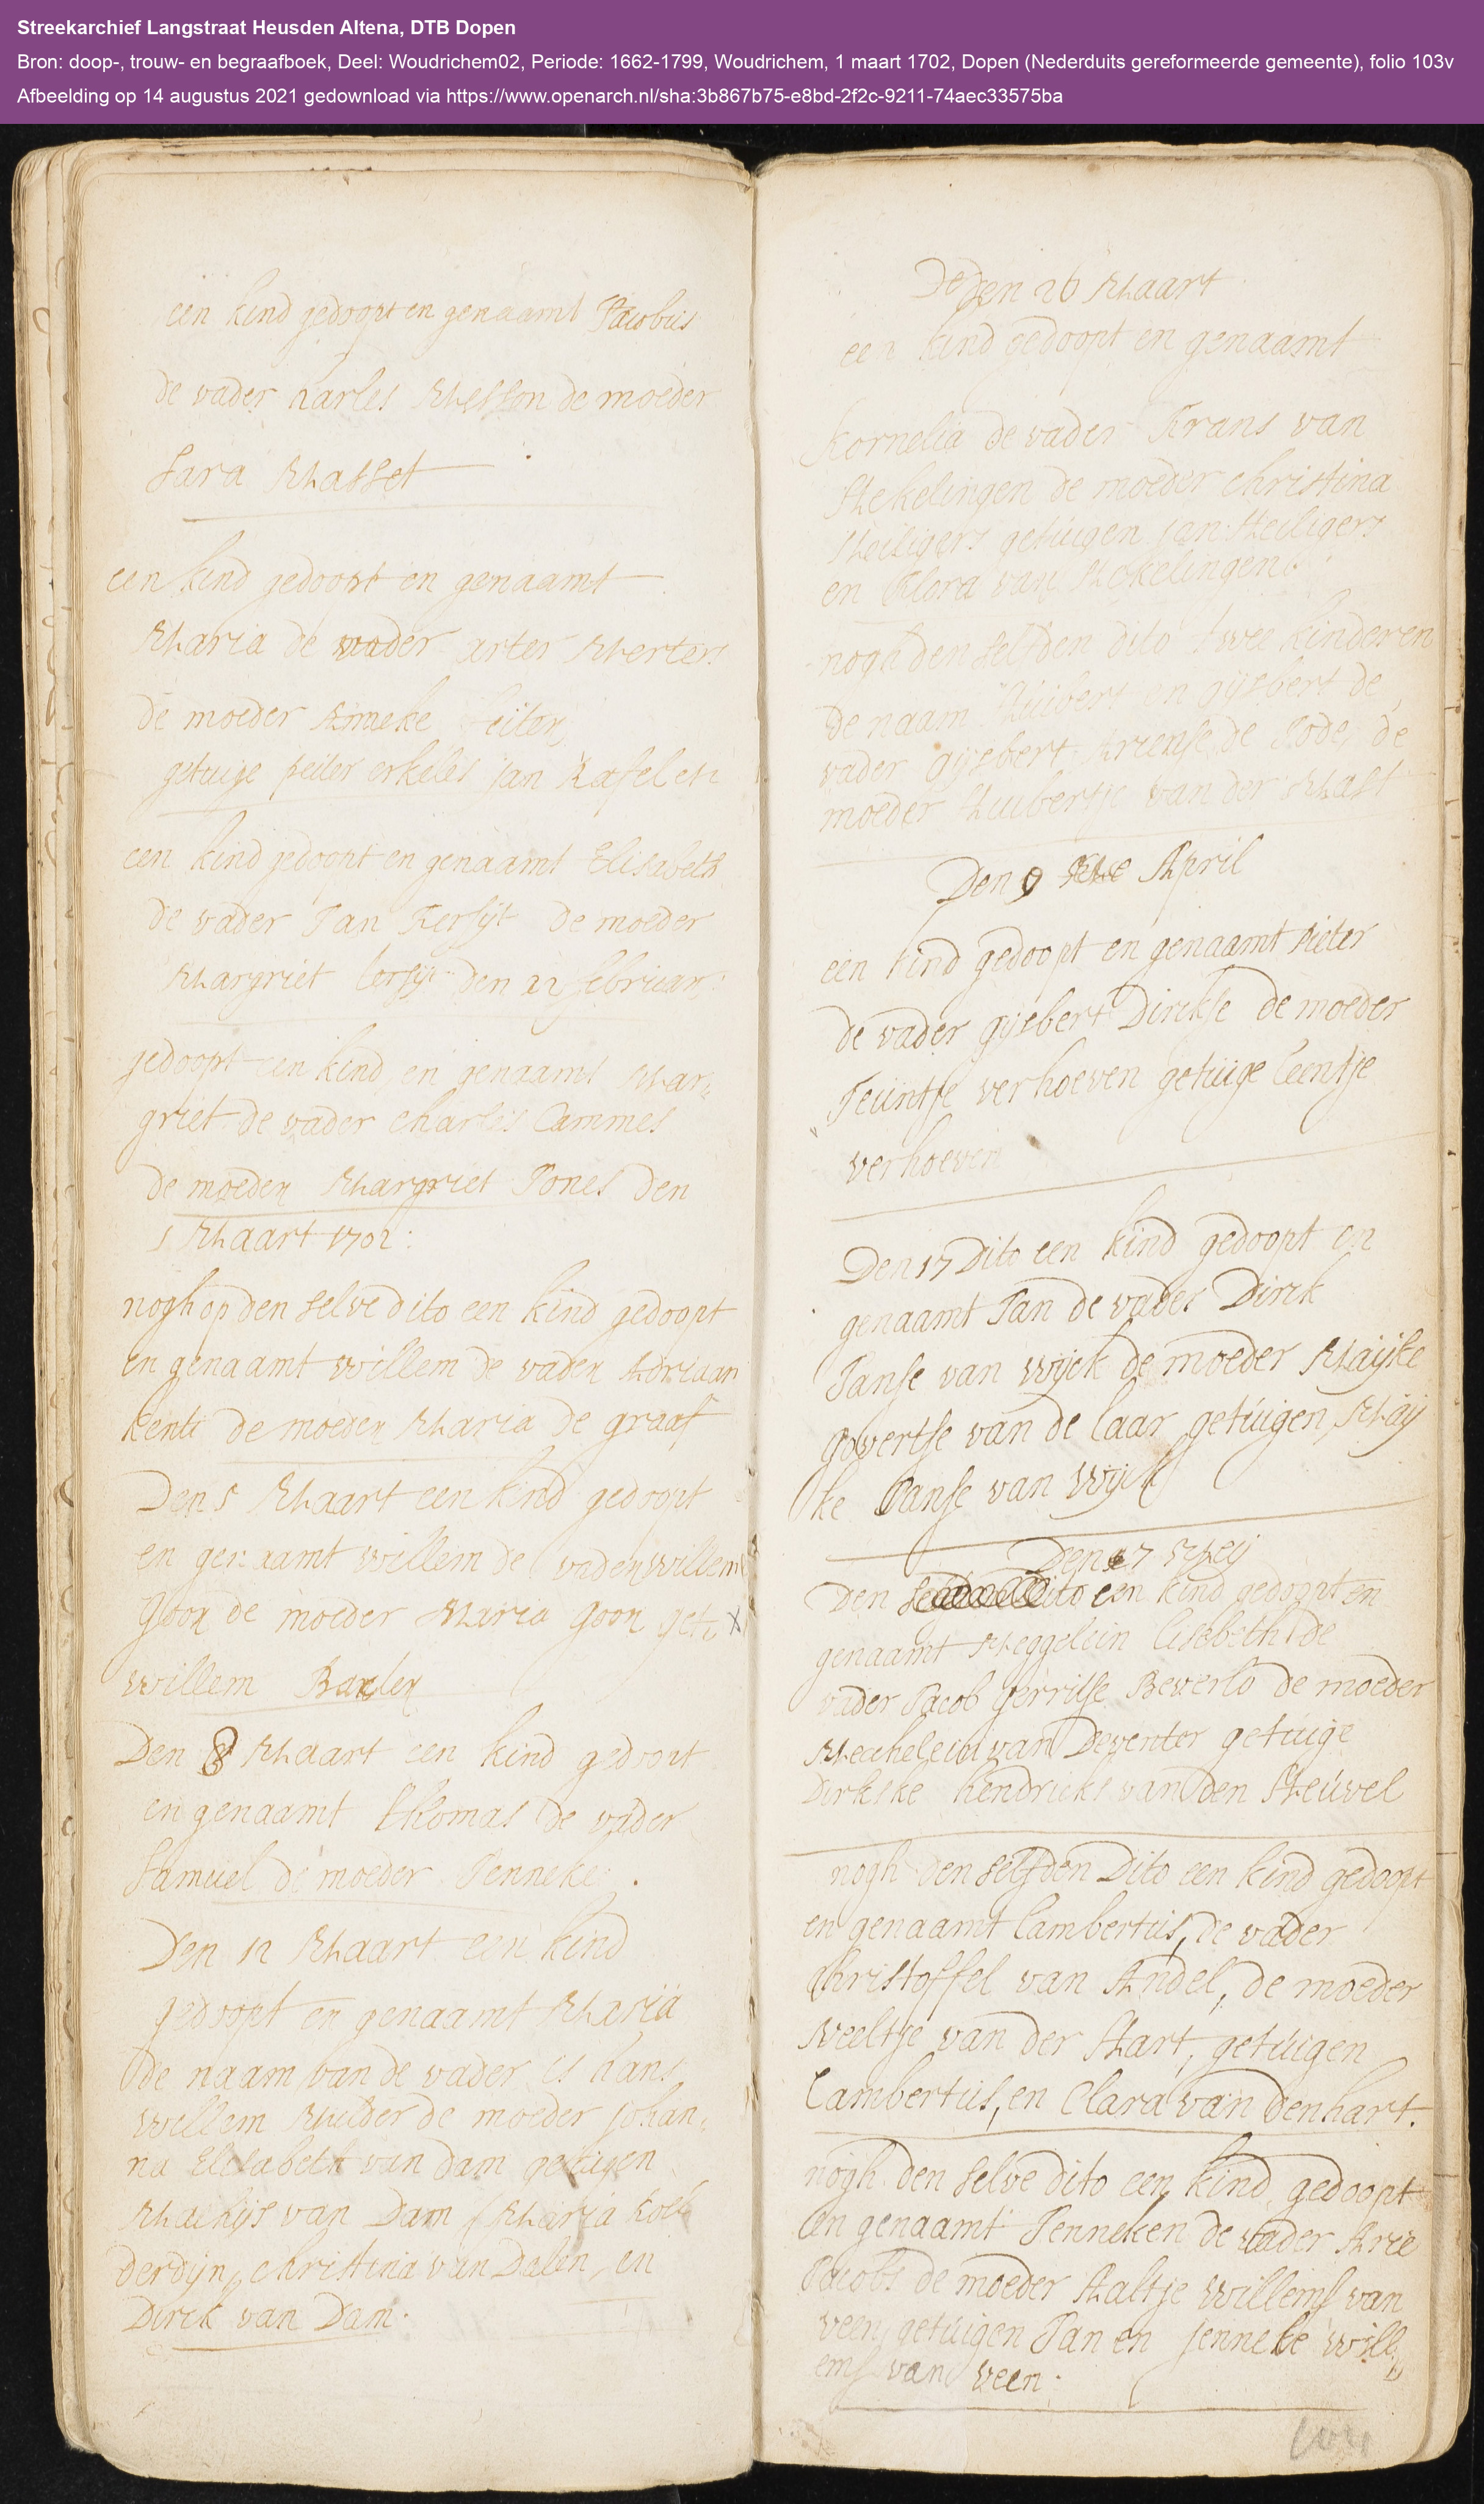 Streekarchief Langstraat Heusden Altena, DTB Dopen
Bron: doop-, trouw- en begraafboek, Deel: Woudrichem02, Periode: 1662-1799, Woudrichem, 1 maart 1702, Dopen (Nederduits gereformeerde gemeente), folio 103v
Afbeelding op 14 augustus 2021 gedownload via https://www.openarch.nl/sha:3b867b75-e8bd-2f2c-9211-74aec33575ba
een kind gedoopt en genaamt Jacobus
de vader Carles de moeder
Sara Masset
een kind gedoopt en genaamt
Maria de vader arter Merters
de moeder Anneke
getuige peiter erkeles Jan Kafelen
een kind gedoopt en genaamt Elisabeth
de vader Jan Kersijt de moeder
Margriet den 22 februari
gedoopt een kind en genaamt Mar=
griet de vader Charles Lammes
de moeder Margriet Jones den
1 Maart 1702:
nogh op den selve dito een kind gedoopt
en genaamt willem de vader Adriaan
kenti de moeder Maria de graaf
Den 5 Maart een kind gedoopt
en genaamt willem de vader willem
goon de moeder Maria goon get: x
willem
Den 8 Maart een kind gedoopt
en genaamt thomas de vader
Samuel de moeder Jenneke.
Den 12 Maart een kind
gedoopt en genaamt Maria
de naam van de vader is hans
willem Mulder de moeder johan,
na Elisabeth van dam getuigen
Mathijs van Dam Maria Kol
derdijn, christina van Dalen, en
Dirck van Dam.
Den 26 Maart
een kind gedoopt en genaamt
kornelia de vader Frans van
Mekelingen de moeder christina
Heiligers getuigen jan Heiligers
en Flora van Mekelingen
nogh den selfden dito twee kinderen
de naam Huibert en gijsbert de
vader Gijsbert Ariense de Jode, de
moeder Huibertje van der Mast
Den 9 April
een kind gedoopt en genaamt Pieter
de vader gijsbert Dirckse de moeder
Teuntje verhoeven getuige Leentje
verhoeven
Den 17 Dito een kind gedoopt en
genaamt Jan de vader Dirck
Janse van Wijck de moeder Maijke
govertse van de laar getuigen, Maij
ke Janse van Wijck
Den 7 Meij
Den dito een kind gedoopt en
genaamt Meggelein lisebeth de
vader Jacob gerritse Beverlo de moeder
Mechelein van Deventer getuige
Dirkske hendricks van den Heuvel
nogh den selfden Dito een kind gedoopt
en genaamt Lambertus, de vader
Christoffel van Andel, de moeder
Neeltje van der Hart, getuigen
Lambertus, en Clara van den hart.
nogh den selve dito een kind gedoopt
en genaamt Jenneken de vader Arie
Jacobs de moeder Aaltje Willems van
veen getuigen Jan en jenneke will,,
ems van veen: